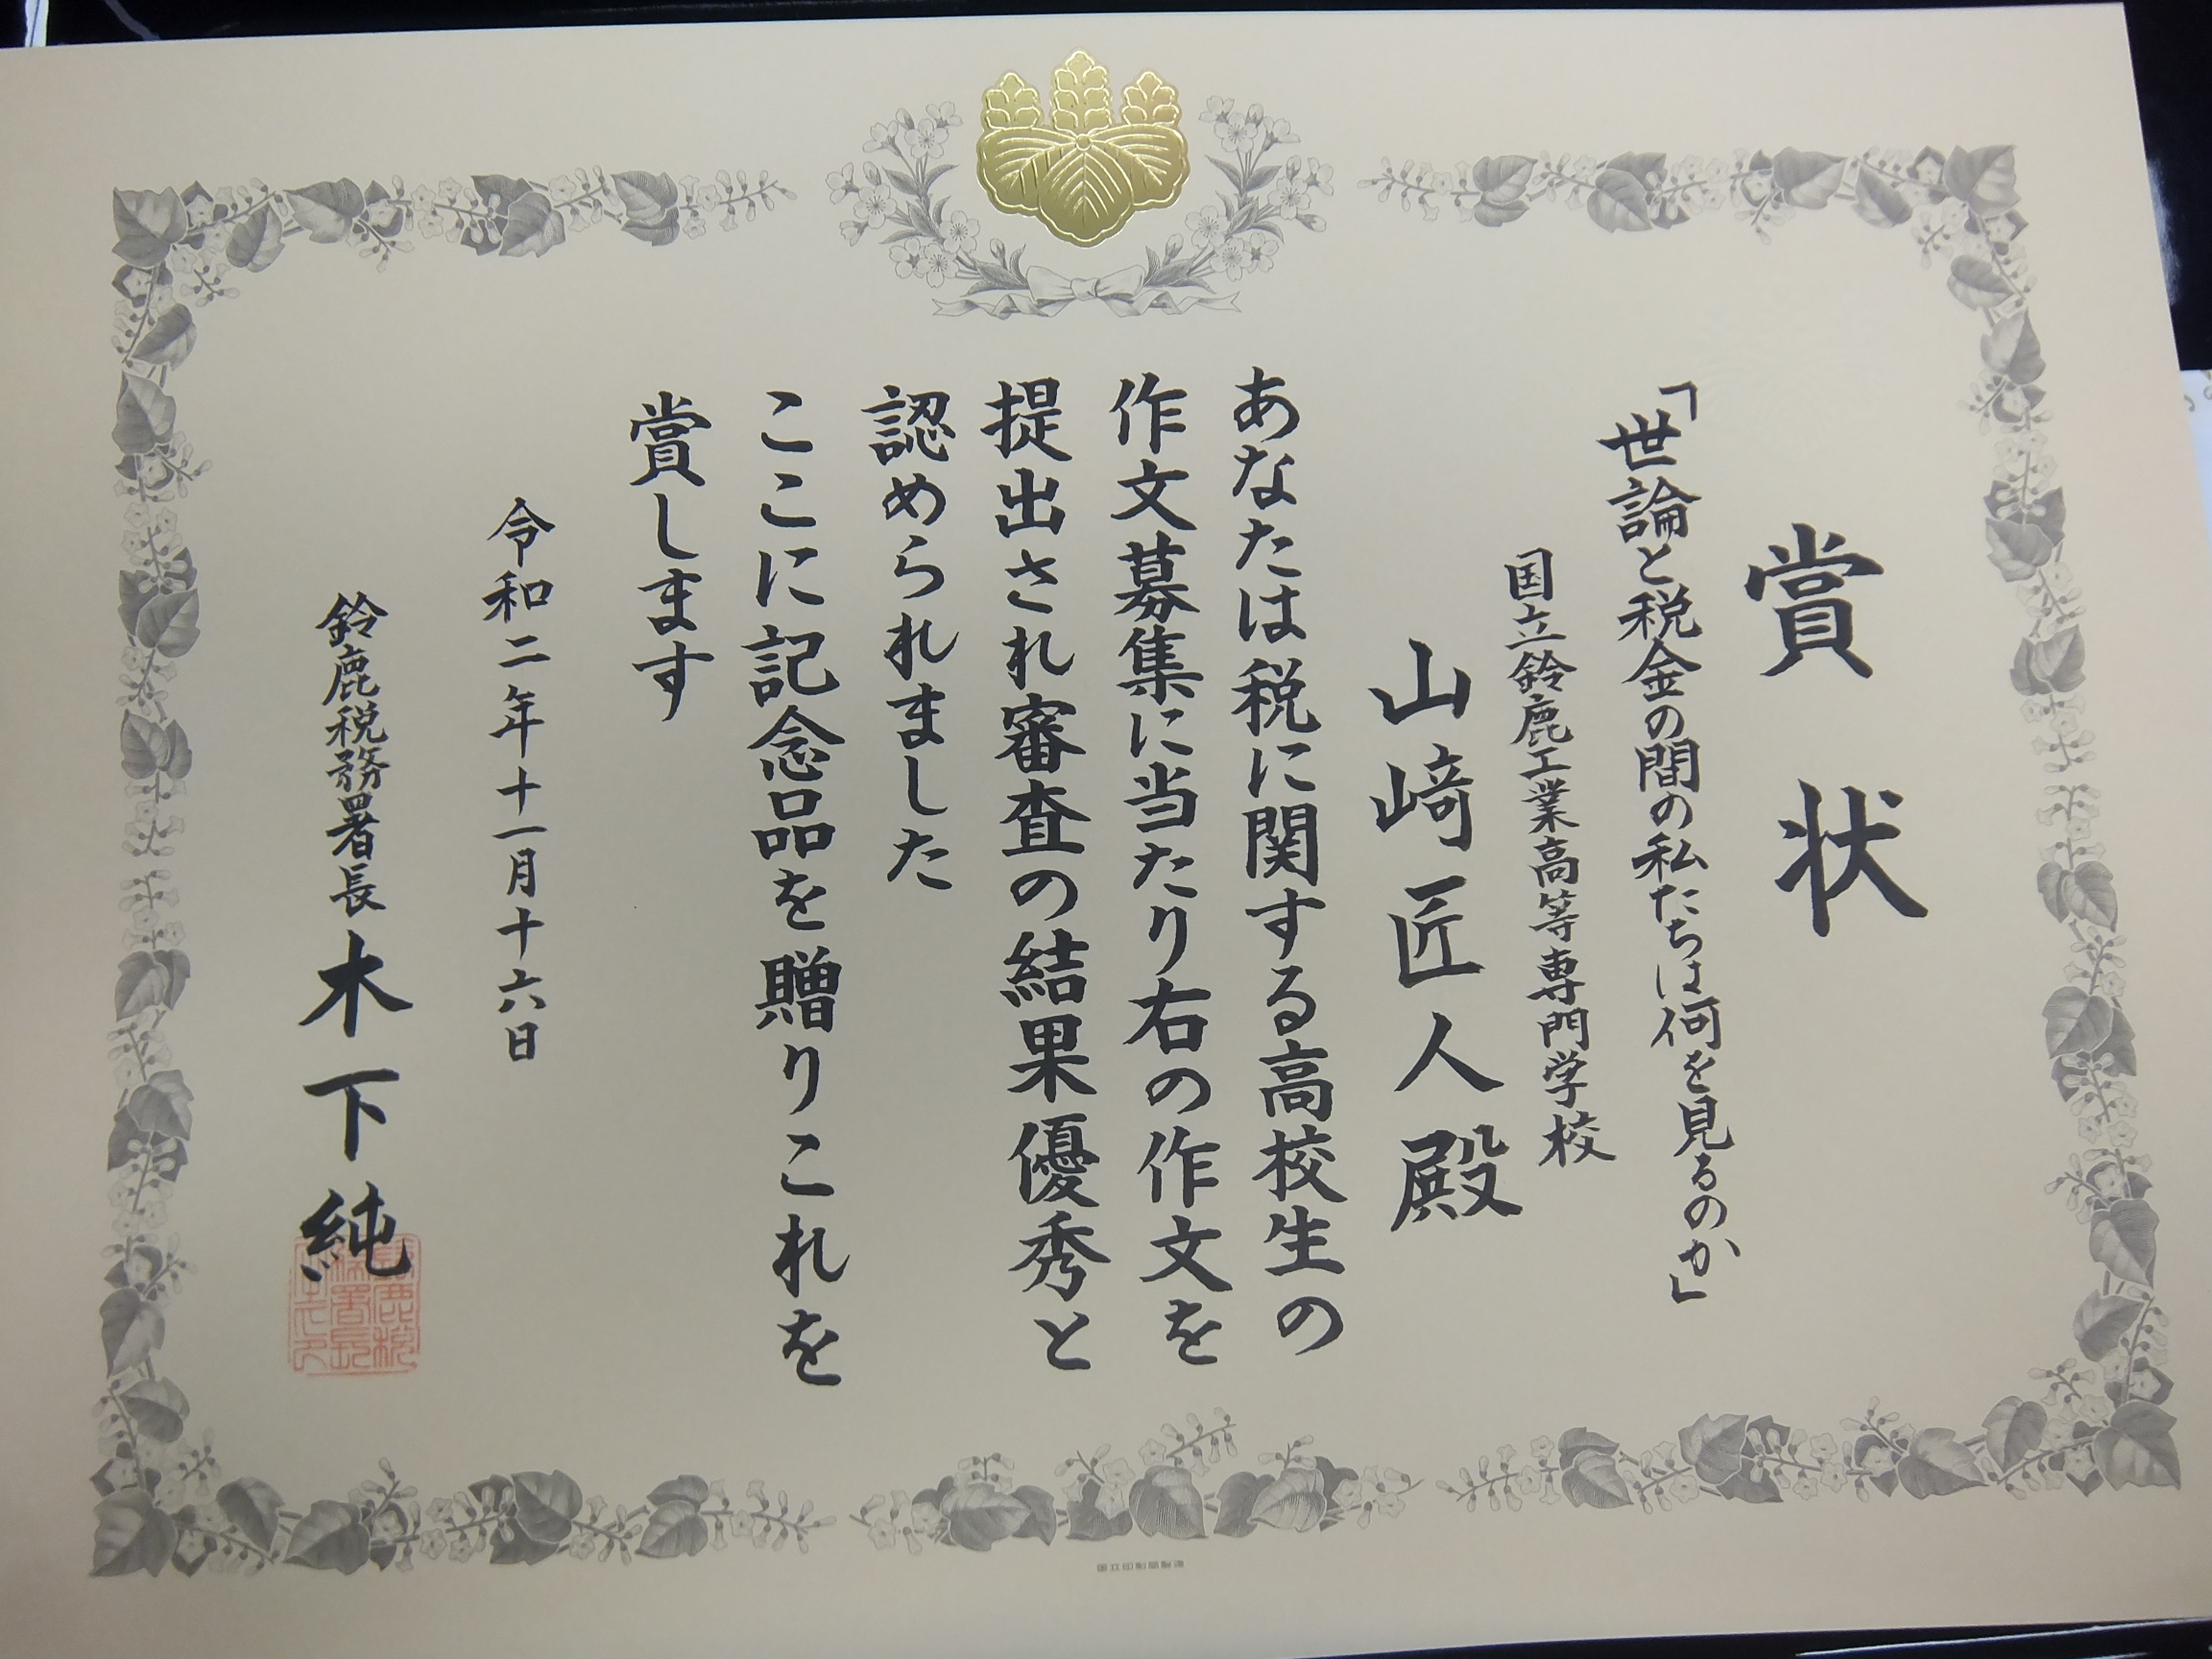 賞状
「世論と税金の間の私たちは何を見るのか」
国立鈴鹿工業高等専門学校
山﨑匠人殿
あなたは税に関する高校生の
作文募集に当たり右の作文を
提出され審査の結果優秀と
認められました
ここに記念品を贈りこれを
賞します
令和二年十一月十六日
鈴鹿税務署長 木下純
国立印刷局製造